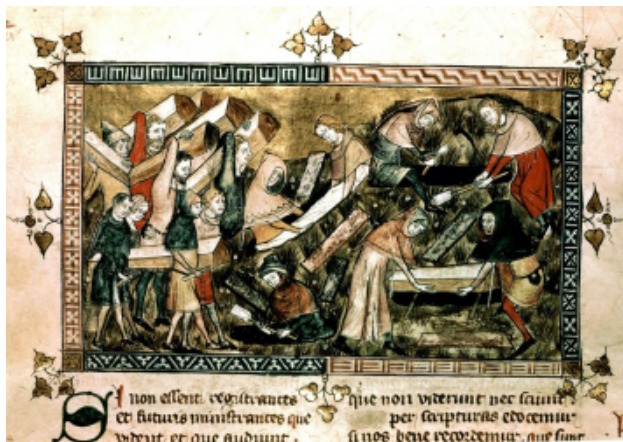 non essent registrantes
et futuris ministrantes que
viderit et que audiunt.
que non viderunt nec sciunt
per scripturas edocemur
si nos bene recordemur, que sint